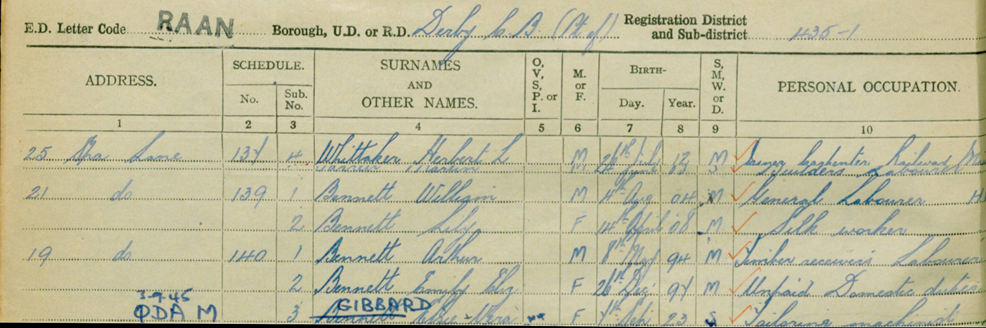 E.D. Letter Code RAAN Borough, U.D. or R.D. Derby C.B. (Pt of) Registration District and Sub-district 435-1
ADDRESS. SCHEDULE. No. Sub. No. SURNAMES AND OTHER NAMES. O, V, S, P. or I. M. or F. BIRTH- Day. Year. S, M, W, or D. PERSONAL OCCUPATION.
1 2 3 4 5 6 7 8 9 10
25 Spa Lane 137 4 Whittaker Herbert L M 83 M Carpenter Railway
Builders Labourer
21 do 139 1 Bennett William M 4th Aug 04 M General Labourer
2 Bennett Lily F 14th April 08 M Silk worker
19 do 140 1 Bennett Arthur M 8th 94 M Timber receivers Labourer
2 Bennett Emily Eliz F 26th 97 M Unpaid Domestic duties
3-9-45 GIBBARD
ODA M 3 Bennett Vera F 23 S Tailoring machinist